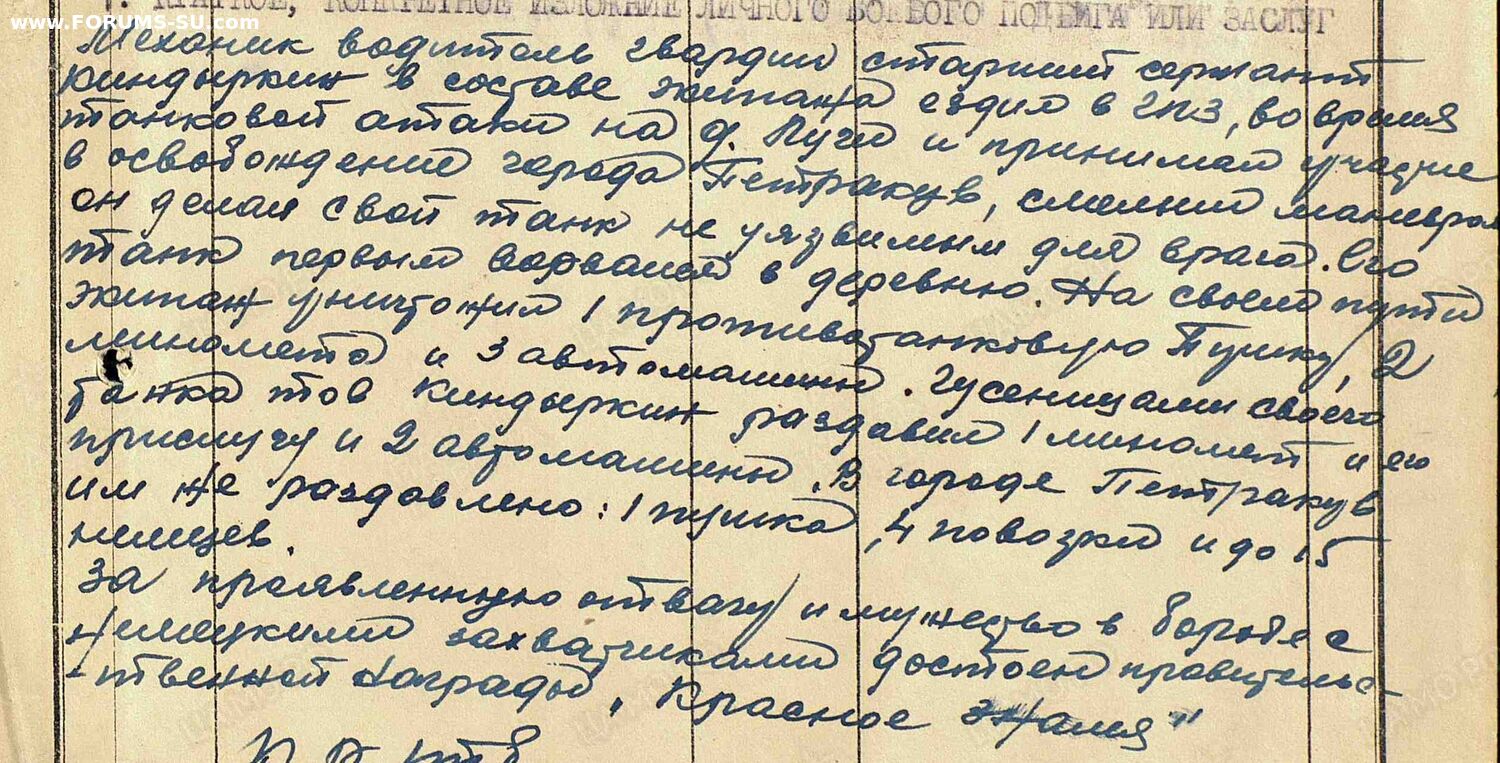 www.FORUMS-SU.com
КРАТКОЕ, КОНКРЕТНОЕ ИЗЛОЖНИЕ ЛИЧНОГО БОЕВОГО ПОДВИГА ИЛИ ЗАСЛУГ
Механик водитель гвардии старший сержант
Киндыркин в составе экипажа ездил в ГПЗ, во время
танковой атаки на д. Пучи и принимал участие
в освобождение города Петракув, смелыми маневрам
он делал свой танк не уязвимым для врага. Его
танк первым ворвался в деревню. На своем пути
экипаж уничтожил 1 противотанковую пушку, 2
миномета и 3 автомашины. Гусеницами своего
танка тов Киндыркин раздавил 1 миномет и его
прислугу и 2 автомашины. В городе Петракув
им же раздавлено: 1 пушка, 4 повозки и до 15
немцев.
За проявленную отвагу и мужество в борьбе с
немецкими захватчиками достоен правительс-
твенной награды „Красное Знамя"